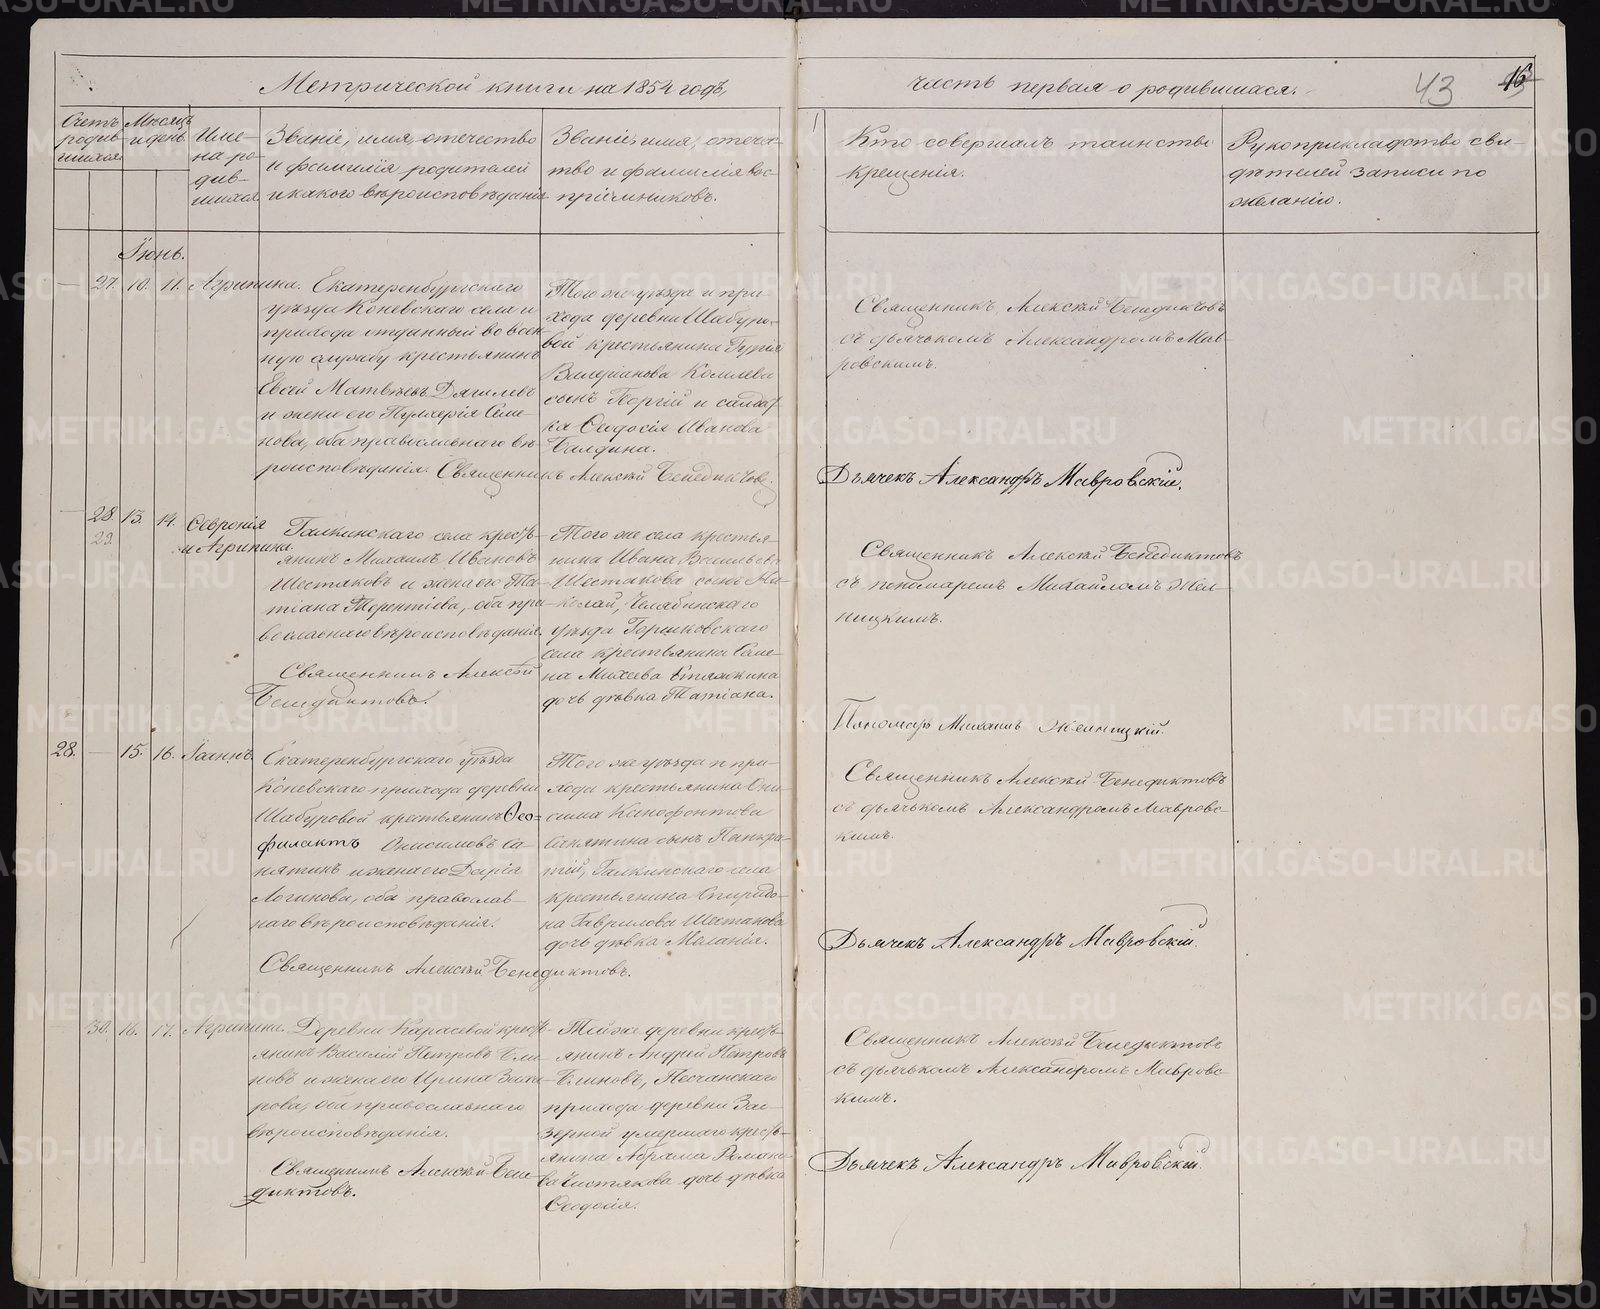 Метрической книги на 1854 годъ,
часть первая о родившихся.
43
16
Счетъ родив-шихся.
Мѣсяцъ и день.
Име-на ро-див-шихся
Званіе, имя, отечество
и фамилія родителей
и какого вѣроисповѣданія
Званіе, имя, отече-
тво и фамилія вос-
пріемниковъ.
Кто совершалъ таинство
крещенія.
Рукоприкладство сви-
дѣтелей записи по
желанію.
Іюнь.
27. 10. 11. Агрипина.
Екатеренбургскаго
уѣзда Коневскаго села и
прихода отданный во воен-
ную службу крестьянинъ
Матвѣевъ
и жена его Пулхерія Семе-
нова, оба православнаго вѣ-
роисповѣданія. Священникъ Алексѣй Бенедиктовъ.
Того же уѣзда и при-
хода деревни Шабуро-
вой крестьянина Гурія
Валеріанова
сынъ Георгій и солдат-
ка Ѳеодосія Иванова
Балдина.
Священникъ Алексѣй Бенедиктовъ
съ дьячькомъ Александромъ Мав-
ровскимъ.
Дьячекъ Александръ Мавровскій.
28. 13. 14. Ѳевронія
29. и Агрипина.
Галкинскаго села кресть-
янинъ Михаилъ Ивановъ
Шестаковъ и жена его Та-
тіана Терентіева, оба пра-
вославнаго вѣроисповѣданія.
Священникъ Алексѣй
Бенедиктовъ.
Того же села крестья-
нина Ивана Васильева
Шестакова сынъ Ни-
колай, Челябинскаго
уѣзда
села крестьянина Семе-
на Михеева
дочь дѣвка Татіана.
Священникъ Алексѣй Бенедиктовъ
съ пономаремъ Михаиломъ Жел-
ницкимъ.
Пономарь Михаилъ Желницкій.
28. 15. 16. Іоаннъ.
Екатеренбургскаго уѣзда
Коневскаго прихода деревни
Шабуровой крестьянинъ Ѳео=
филактъ Онисимовъ Са-
нятинъ и жена его Дарія
Логинова, оба православ-
наго вѣроисповѣданія.
Священникъ Алексѣй Бенедиктовъ.
Того же уѣзда и при-
хода крестьянина Они-
сима Ксенофонтова
Санятина сынъ Панкра-
тій, Галкинскаго села
крестьянина Спиридо-
на Гаврилова Шестакова
дочь дѣвка Меланія.
Священникъ Алексѣй Бенедиктовъ
съ дьячькомъ Александромъ Мавровс-
кимъ.
Дьячекъ Александръ Мавровскій.
30. 16. 17. Агрипина.
Деревни Карасевой кресть-
янинъ Василій Петровъ Бли-
новъ и жена его Ирина Заха-
рова, оба православнаго
вѣроисповѣданія.
Священникъ Алексѣй Бене-
диктовъ.
Той же деревни кресть-
янинъ Андрей Петровъ
Блиновъ, Песчанскаго
прихода деревни Зао-
зерной умершаго кресть-
янина Абрама Романо-
ва Чистякова дочь дѣвка
Ѳеодосія.
Священникъ Алексѣй Бенедиктовъ
съ дьячькомъ Александромъ Мавровс-
кимъ.
Дьячекъ Александръ Мавровскій.
METRIKI.GASO-URAL.RU